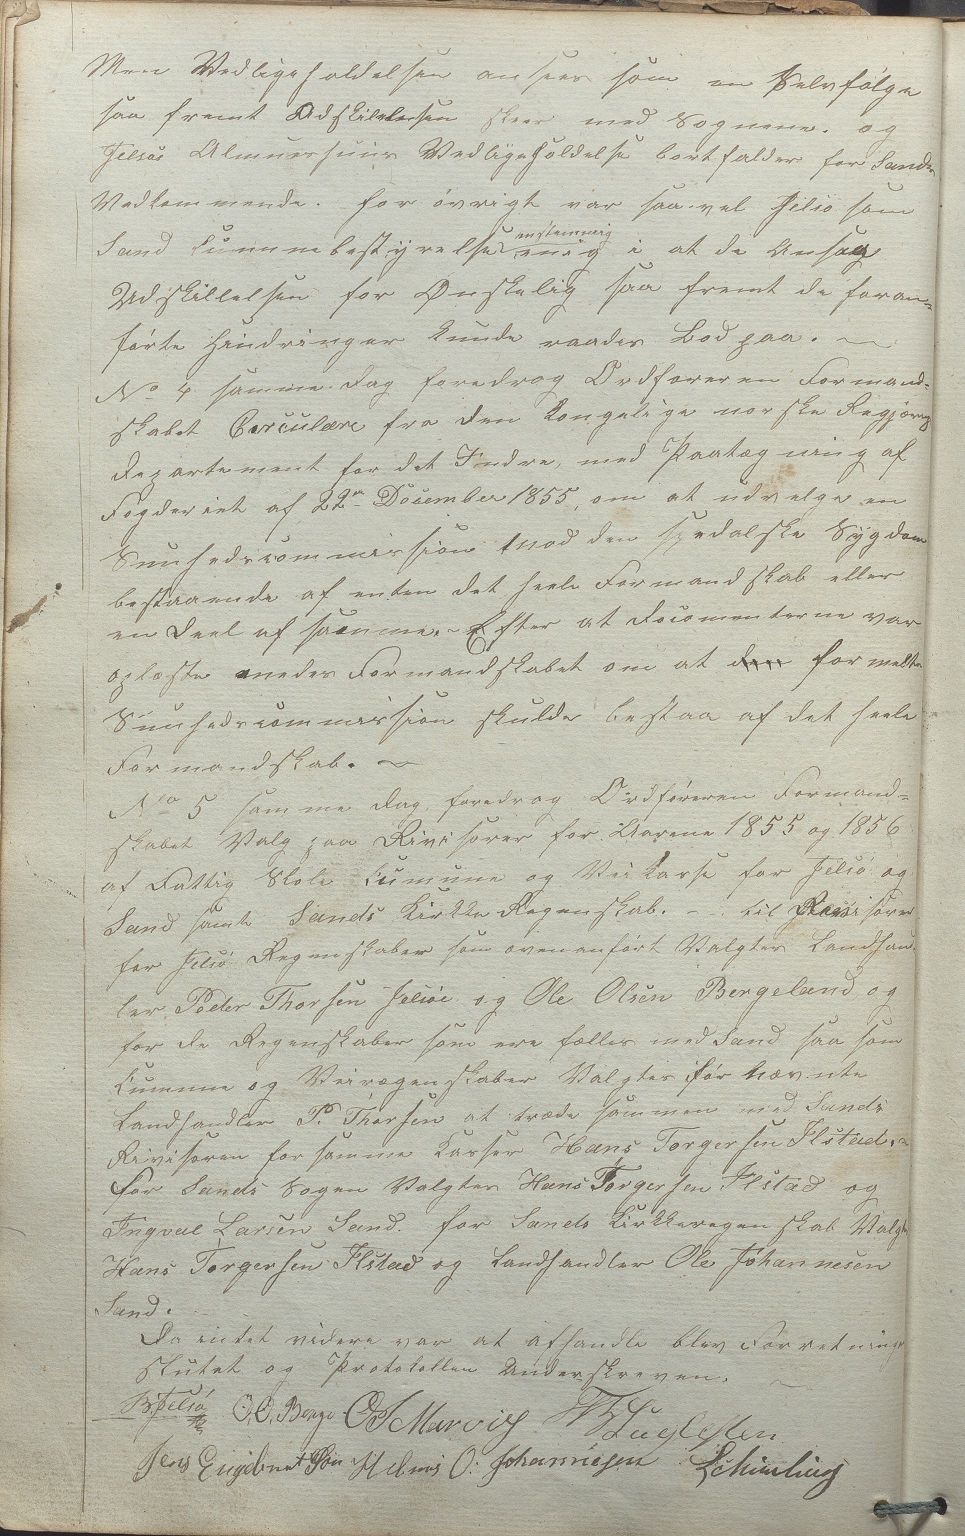 Men Vedligeholdelsen ansees som en Selvfølge
saa fremt Adskillelsen skeer med Sognene. og
Jelsøe Almuessuus Vedligeholdelse bortfalder for Sands
Vedkommende. for øvrigt var saavel Jelsø som
Sand Cummunebestyrelse enstemmig enig i at de Ansaa
Udskillelsen for Ønskelig saa fremt de foran-
førte Hindringer kunde raades Bod paa. –
No 4 samme Dag foredrog Ordføreren Formand-
skabet Circulære fra den Kongelige norske Regjerings
Departement for det Indre, med Paategning af
Fogderiet af 22de December 1855, om at udvelge en
Sunhedscommission mod den spedalske Sygdom
bestaaende af enten det heele Formandskab eller
en Deel af samme. – Efter at Documenterne var
oplæste enedes Formandskabet om at den formelte
Sunhedscommission skulde bestaa af det heele
Formandskab. –
No 5 samme Dag foredrog Ordføreren Formand-
skabet Valg paa Rivisorer for Aarene 1855 og 1856
af Fattig Skole Cumune og Veikasse for Jelsø og
Sand samt Sands Kirkke Regenskab. – til Revisorer
for Jelsø Regenskaber som ovenanført Valgtes Landhand-
ler Peder Thorsen Jelsøe og Ole Olsen Bergeland og
for de Regenskaber som ere fælles med Sand saa som
Cummune og Veiregenskaber Valgtes før nævnte
Landhandler P. Thorsen at træde sammen med Sands
Rivisoren for samme Kasser Hans Torgersen Ilstad. –
for Sands Sogen Valgtes Hans Torgersen Ilstad og
Ingval Larsen Sand. for Sands Kirkkeregenskab Valgtes
Hans Torgersen Ilstad og Landhandler Ole Johannesen
Sand.
Da intet videre var at afhandle blev Forretningen
Slutet og Protokollen Underskreven. –
B. Jelsø O. O. Berge
Jens Engebret Søn Helmis O. Johannesen